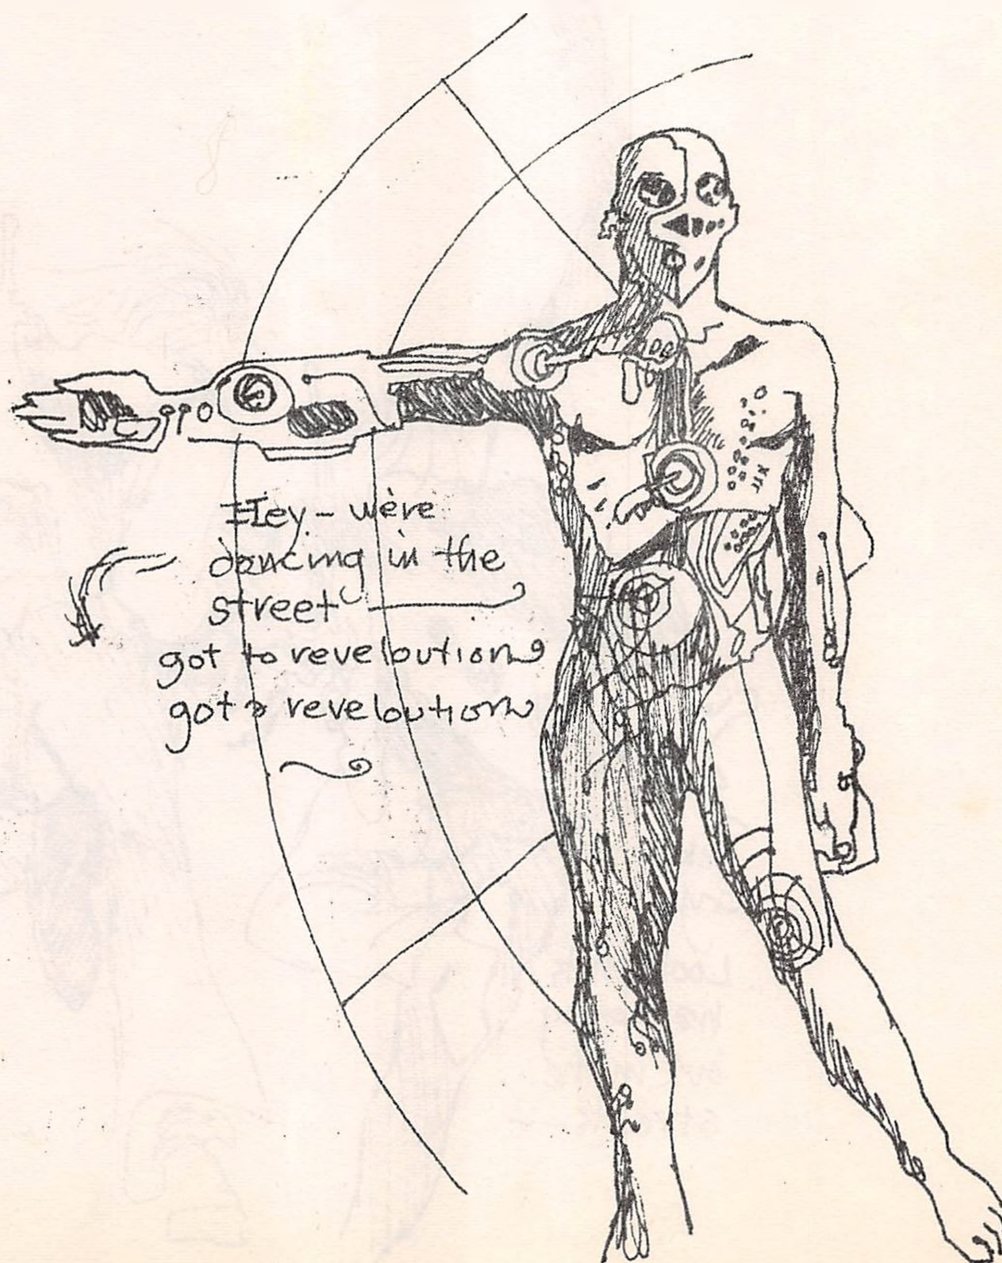 Hey - were
dancing in the
street
got to reveloution
got to reveloution